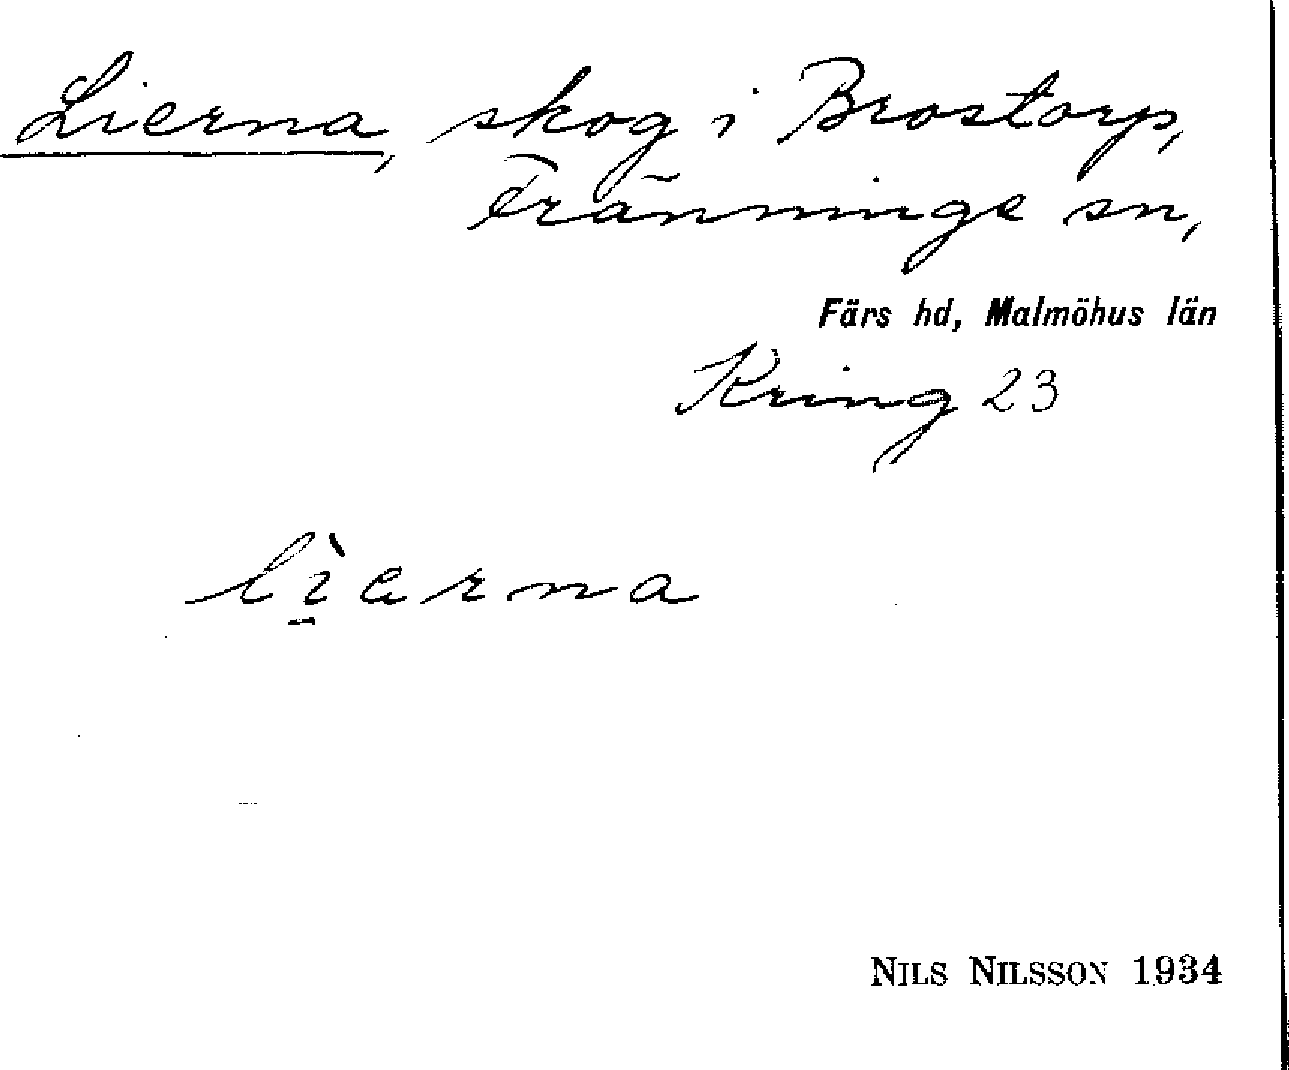 Lierna, skog i Brostorp,
Fränninge sn,
Färs hd, Malmöhus län
Kring 23
lı̠̀ɑrna
NILS NILSSON 1934